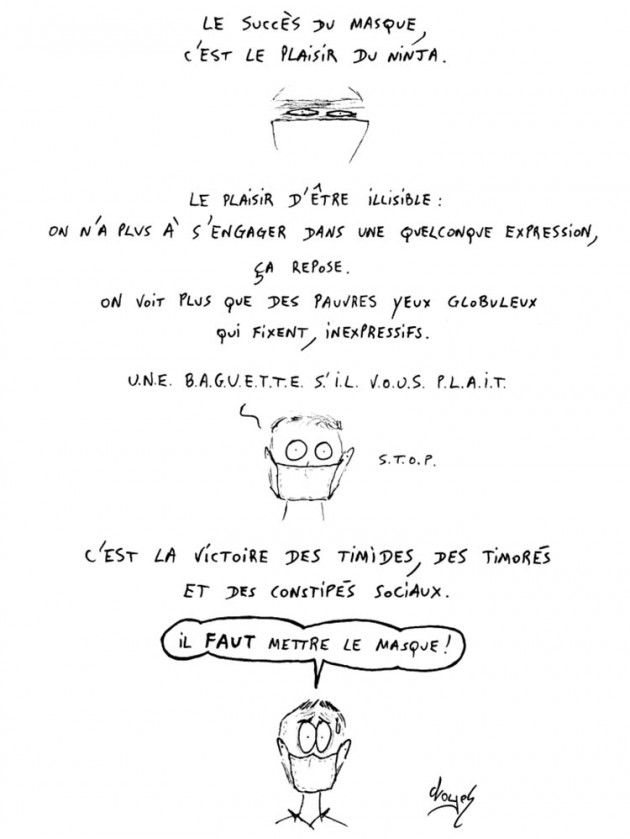 LE SUCCÈS DU MASQUE,
C'EST LE PLAISIR DU NINJA.
LE PLAISIR D'ÊTRE ILLISIBLE :
ON N'A PLUS À S'ENGAGER DANS UNE QUELCONQUE EXPRESSION,
ÇA REPOSE.
ON VOIT PLUS QUE DES PAUVRES YEUX GLOBULEUX
QUI FIXENT, INEXPRESSIFS.
U.N.E. B.A.G.U.E.T.T.E. S'.I.L. V.O.U.S. P.L.A.I.T.
S.T.O.P.
C'EST LA VICTOIRE DES TIMIDES, DES TIMORÉS
ET DES CONSTIPÉS SOCIAUX.
IL FAUT METTRE LE MASQUE !